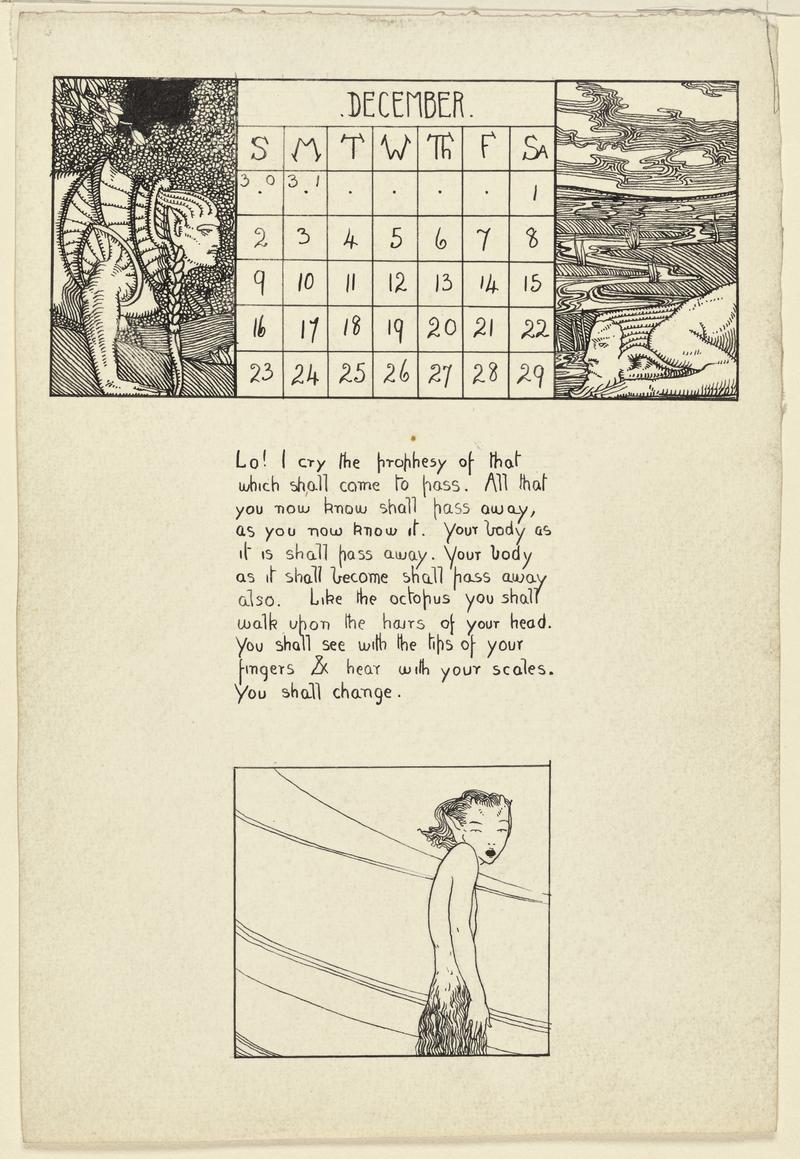 .DECEMBER.
S M T W Th F SA
30 31 . . . . 1
2 3 4 5 6 7 8
9 10 11 12 13 14 15
16 17 18 19 20 21 22
23 24 25 26 27 28 29
Lo! I cry the prophesy of that
which shall come to pass. All that
you now know shall pass away,
as you now know it. Your body as
it is shall pass away. Your body
as it shall become shall pass away
also. Like the octopus you shall
walk upon the hairs of your head.
You shall see with the tips of your
fingers & hear with your scales.
You shall change.